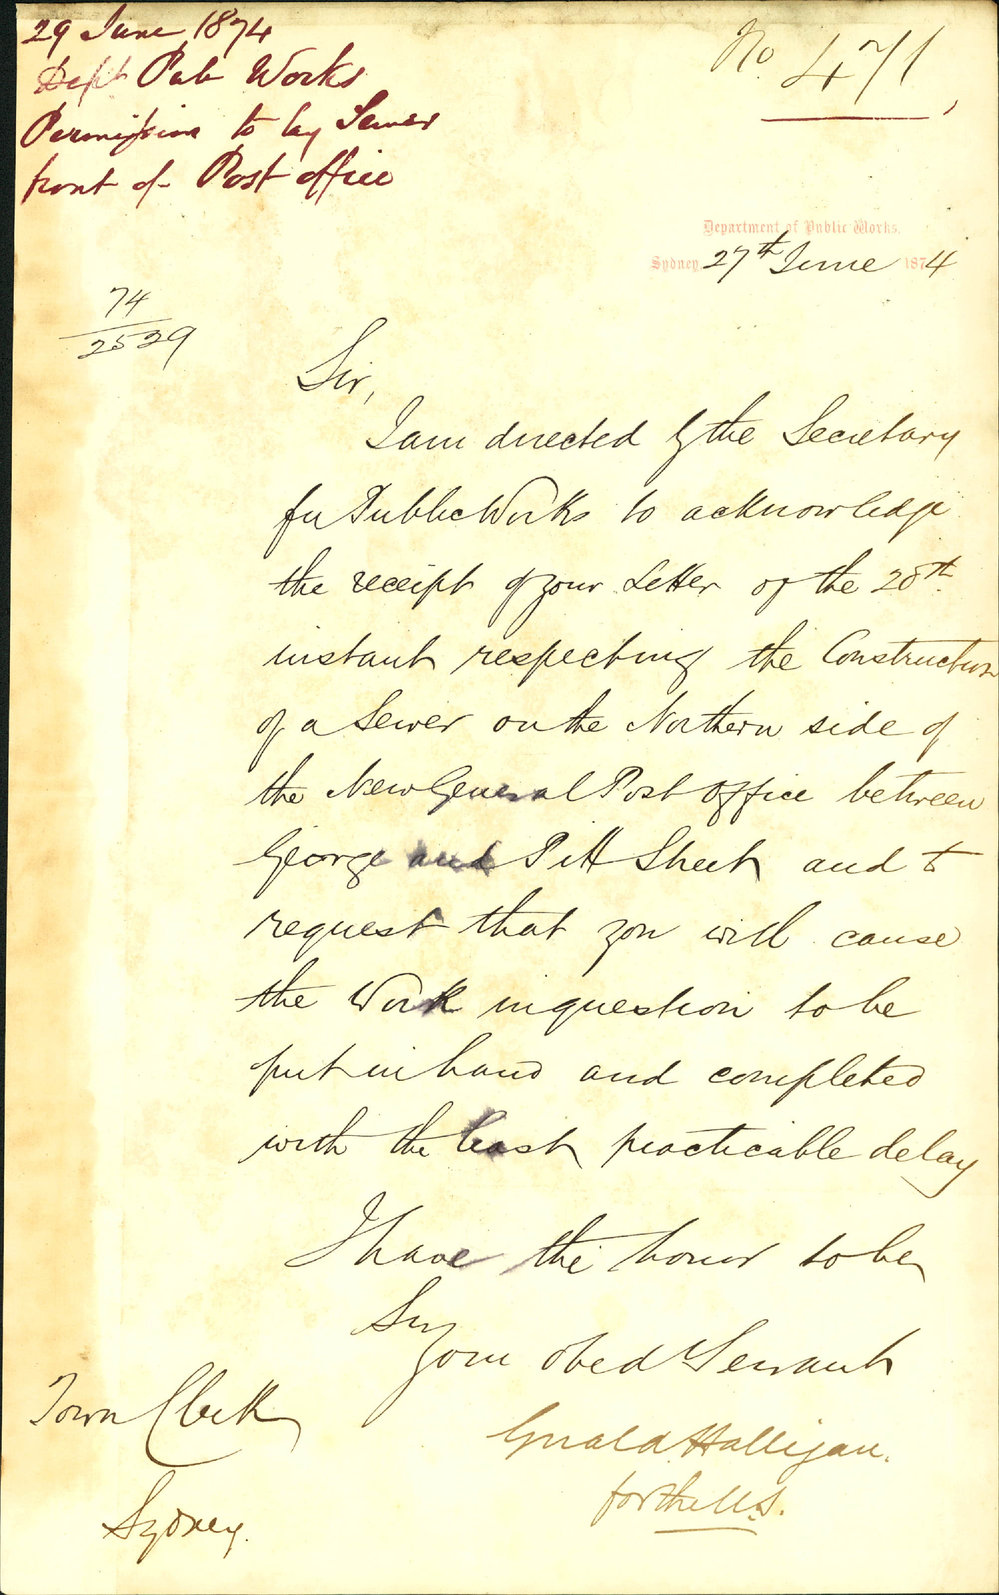 29 June 1874
Dept Pub Works
Permission to lay Sewer
front of Post office
No. 471
Department of Public Works,
Sydney 27th June 1874
74
2529
Sir,
I am directed by the Secretary
for Public Works to acknowledge
the receipt of your Letter of the 20th
instant respecting the Construction
of a Sewer on the Northern side of
the New General Post Office between
George and Pitt Street and to
request that you will cause
the Work in question to be
put in hand and completed
with the least practicable delay
I have the honor to be
Sir
Your obed Servant
Gerald Halligan.
for the U.S.
Town Clerk
Sydney.